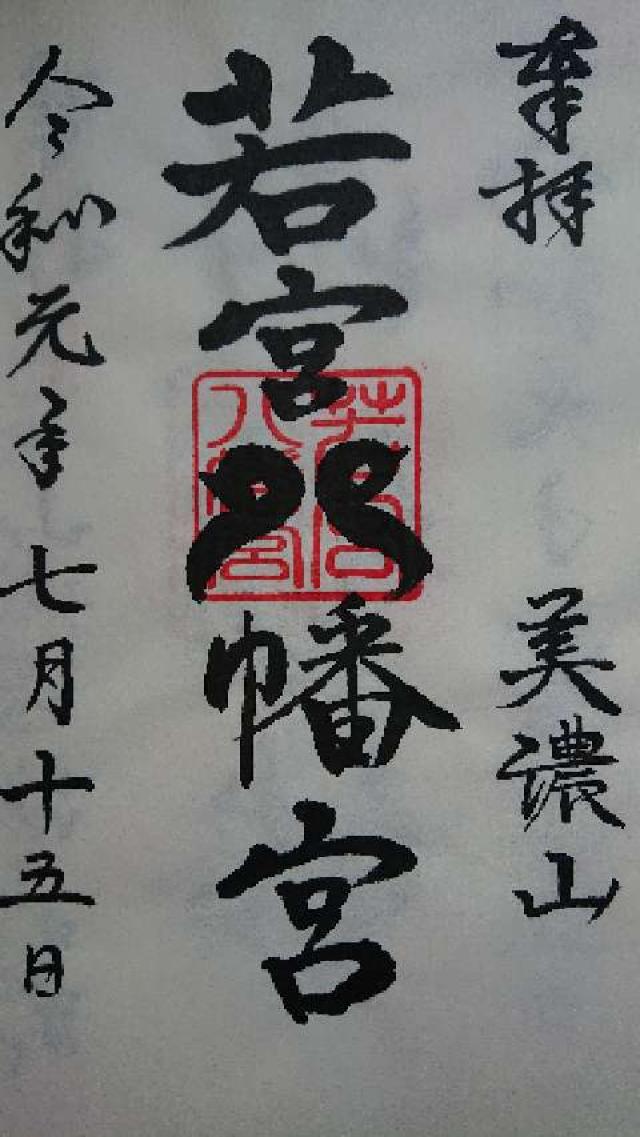 奉拝
美濃山
若宮八幡宮
令和元年七月十五日
若宮
八幡宮